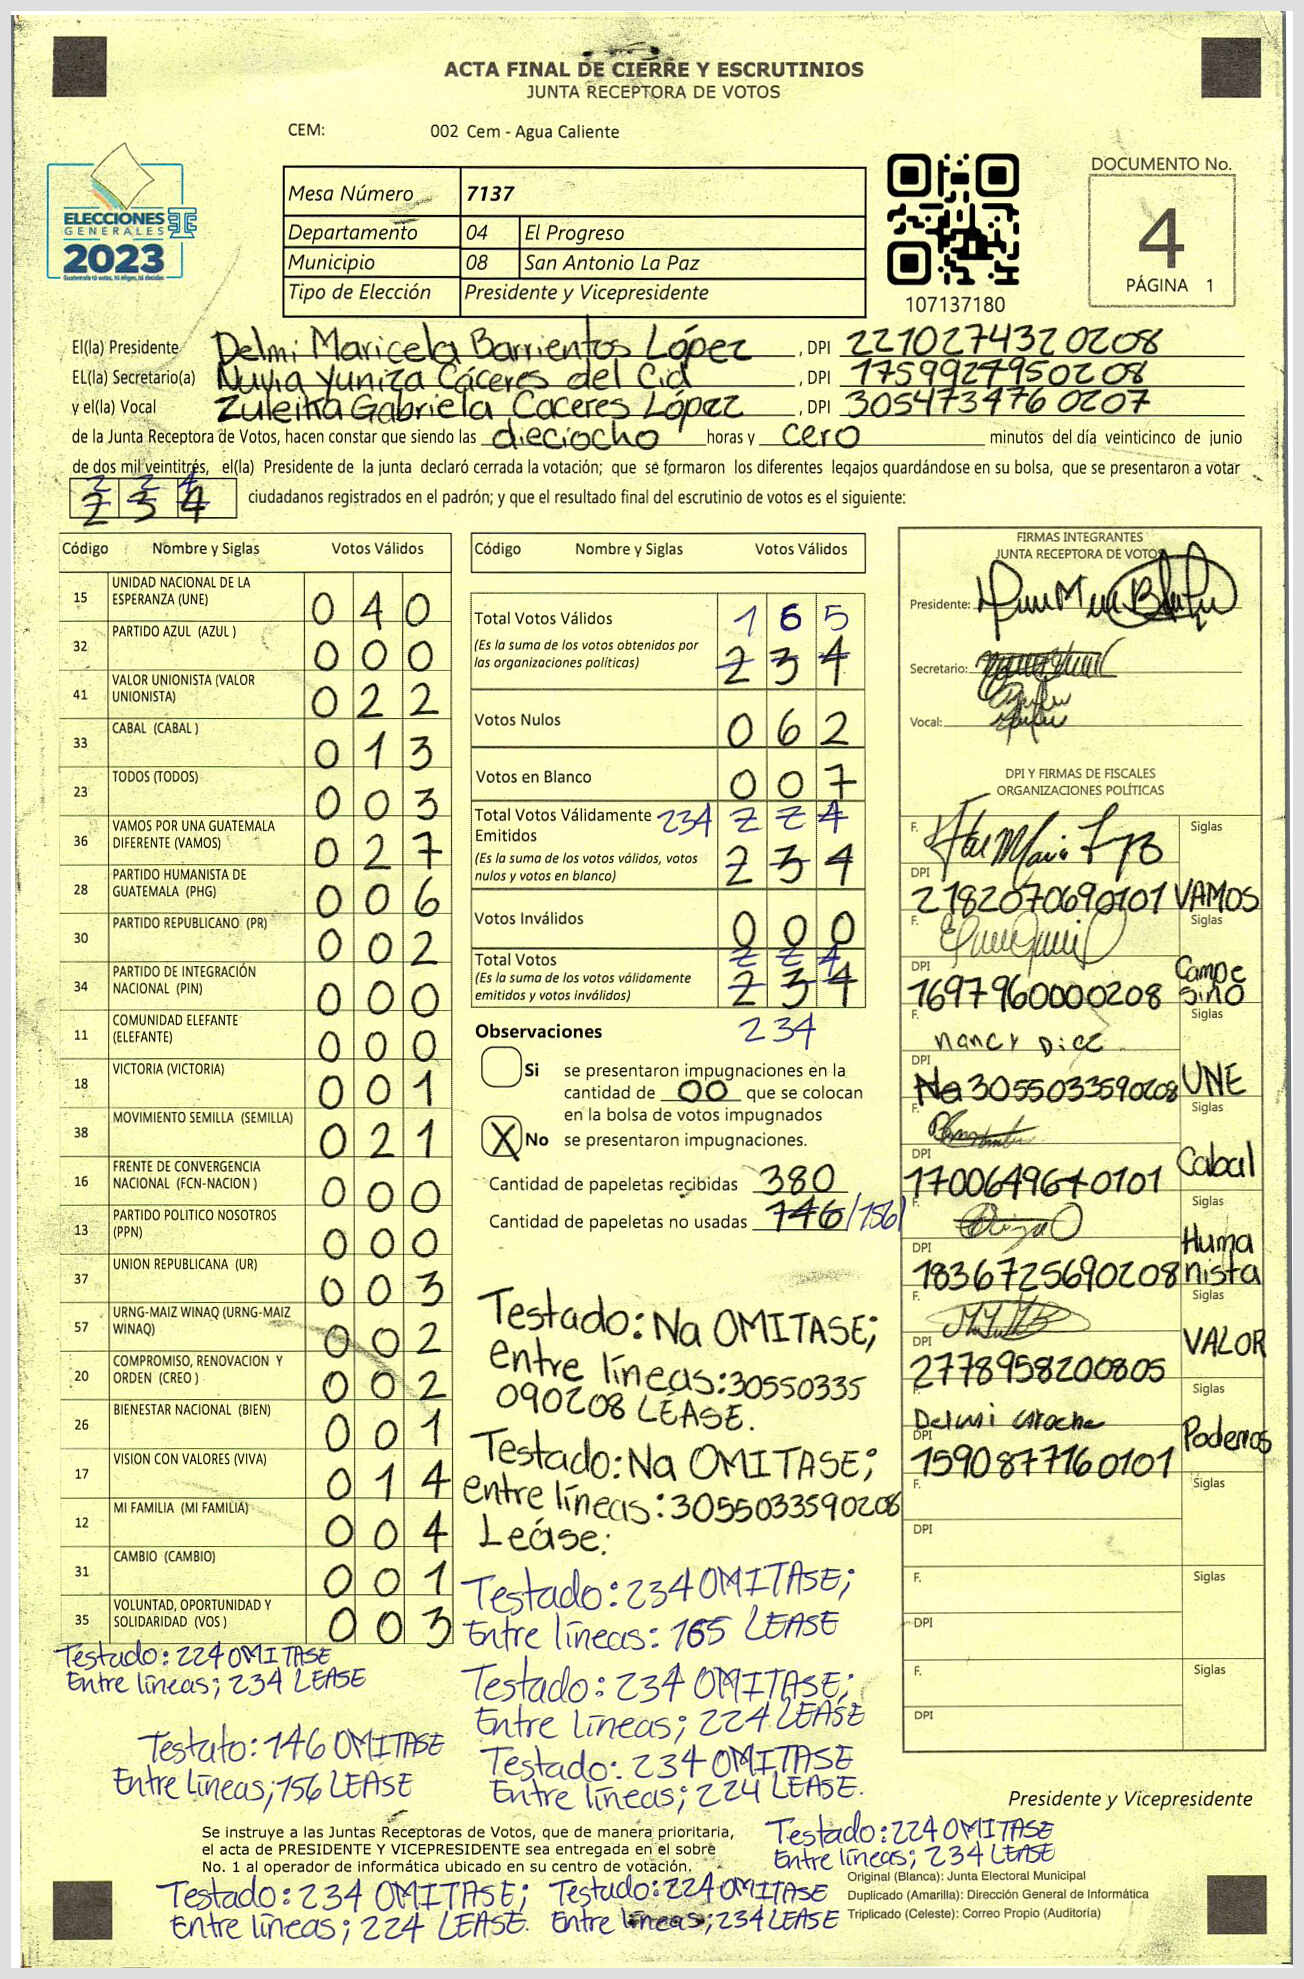 ACTA FINAL DE CIERRE Y ESCRUTINIOS
JUNTA RECEPTORA DE VOTOS
CEM: 002 Cem - Agua Caliente
ELECCIONES
GENERALES
2023
Mesa Número 7137
Departamento 04 El Progreso
Municipio 08 San Antonio La Paz
Tipo de Elección Presidente y Vicepresidente
107137180
DOCUMENTO No.
4
PÁGINA 1
El(la) Presidente Delmi Maricela Barrientos López, DPI 2210274320208
EL(la) Secretario(a) Nuvia Yuniza Cáceres del Cid, DPI 1759927950208
y el(la) Vocal Zuleika Gabriela Caceres López, DPI 3054734760207
de la Junta Receptora de Votos, hacen constar que siendo las dieciocho horas y cero minutos del día veinticinco de junio
de dos mil veintitrés, el(la) Presidente de la junta declaró cerrada la votación; que se formaron los diferentes legajos guardándose en su bolsa, que se presentaron a votar
224
234 ciudadanos registrados en el padrón; y que el resultado final del escrutinio de votos es el siguiente:
Código Nombre y Siglas Votos Válidos
15 UNIDAD NACIONAL DE LA ESPERANZA (UNE) 040
32 PARTIDO AZUL (AZUL ) 000
41 VALOR UNIONISTA (VALOR UNIONISTA) 022
33 CABAL (CABAL ) 013
23 TODOS (TODOS) 003
36 VAMOS POR UNA GUATEMALA DIFERENTE (VAMOS) 027
28 PARTIDO HUMANISTA DE GUATEMALA (PHG) 006
30 PARTIDO REPUBLICANO (PR) 002
34 PARTIDO DE INTEGRACIÓN NACIONAL (PIN) 000
11 COMUNIDAD ELEFANTE (ELEFANTE) 000
18 VICTORIA (VICTORIA) 001
38 MOVIMIENTO SEMILLA (SEMILLA) 021
16 FRENTE DE CONVERGENCIA NACIONAL (FCN-NACION ) 000
13 PARTIDO POLITICO NOSOTROS (PPN) 000
37 UNION REPUBLICANA (UR) 003
57 URNG-MAIZ WINAQ (URNG-MAIZ WINAQ) 002
20 COMPROMISO, RENOVACION Y ORDEN (CREO ) 002
26 BIENESTAR NACIONAL (BIEN) 001
17 VISION CON VALORES (VIVA) 014
12 MI FAMILIA (MI FAMILIA) 004
31 CAMBIO (CAMBIO) 001
35 VOLUNTAD, OPORTUNIDAD Y SOLIDARIDAD (VOS ) 003
Testado: 224 OMITASE
Entre líneas; 234 LEASE
Testato: 146 OMITASE
Entre líneas; 156 LEASE
Código Nombre y Siglas Votos Válidos
Total Votos Válidos 165
(Es la suma de los votos obtenidos por las organizaciones políticas) 234
Votos Nulos 062
Votos en Blanco 007
Total Votos Válidamente Emitidos 234 224
(Es la suma de los votos válidos, votos nulos y votos en blanco) 234
Votos Inválidos 000
Total Votos 224
(Es la suma de los votos válidamente emitidos y votos inválidos) 234
Observaciones 234
Si se presentaron impugnaciones en la
cantidad de 00 que se colocan
en la bolsa de votos impugnados
X No se presentaron impugnaciones.
Cantidad de papeletas recibidas 380
Cantidad de papeletas no usadas 146/156/
Testado: Na OMITASE;
entre líneas: 30550335
090208 LÉASE.
Testado: Na OMITASE;
entre líneas: 3055033590208
Leáse:
Testado: 234 OMITASE;
Entre líneas: 165 LEASE
Testado: 234 OMITASE;
Entre líneas; 224 LEASE
Testado: 234 OMITASE
Entre líneas; 224 LEASE.
FIRMAS INTEGRANTES
JUNTA RECEPTORA DE VOTOS
Presidente:
Secretario:
Vocal:
DPI Y FIRMAS DE FISCALES
ORGANIZACIONES POLÍTICAS
F. Siglas
DPI 2182070690101 VAMOS
F. Siglas
DPI 1697960000208 Campesino
F. Nancy Siglas
DPI Na 3055033590208 UNE
F. Siglas
DPI 1700649640101 Cabal
F. Siglas
DPI 1836725690208 Humanista
F. Siglas
DPI 2778958200805 VALOR
F. Delmi Siglas
DPI 1590877160101 Podemos
F. Siglas
DPI
F. Siglas
DPI
F. Siglas
DPI
Presidente y Vicepresidente
Se instruye a las Juntas Receptoras de Votos, que de manera prioritaria,
el acta de PRESIDENTE Y VICEPRESIDENTE sea entregada en el sobre
No. 1 al operador de informática ubicado en su centro de votación.
Testado: 224 OMITASE
Entre líneas; 234 LEASE
Original (Blanca): Junta Electoral Municipal
Duplicado (Amarilla): Dirección General de Informática
Triplicado (Celeste): Correo Propio (Auditoría)
Testado: 234 OMITASE; Testado: 224 OMITASE
Entre líneas; 224 LEASE. Entre líneas; 234 LEASE